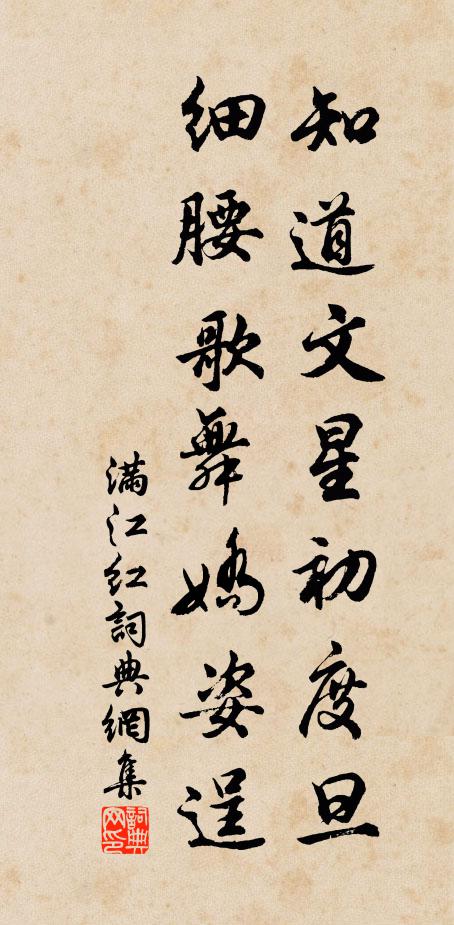 知道文星初度旦
細腰歌舞嬌姿逞
满江红詞典網集
詞典網印